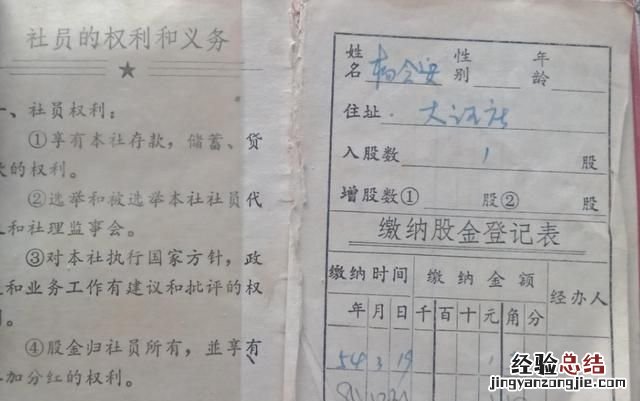 社员的权利和义务
、社员权利：
①享有本社存款，储蓄、贷
的权利。
②选举和被选举本社社员代
和社理监事会。
③对本社执行国家方针，政
和业务工作有建议和批评的权
④股金归社员所有，並享有
加分红的权利。
姓名 性别 年龄
住址
入股数 1 股
增股数① 股② 股
缴纳股金登记表
缴纳时间 缴纳金额 经办人
年 月 日 千 百 十 元 角 分
54 3 19 1
经验总结
jingyanzongjie.com